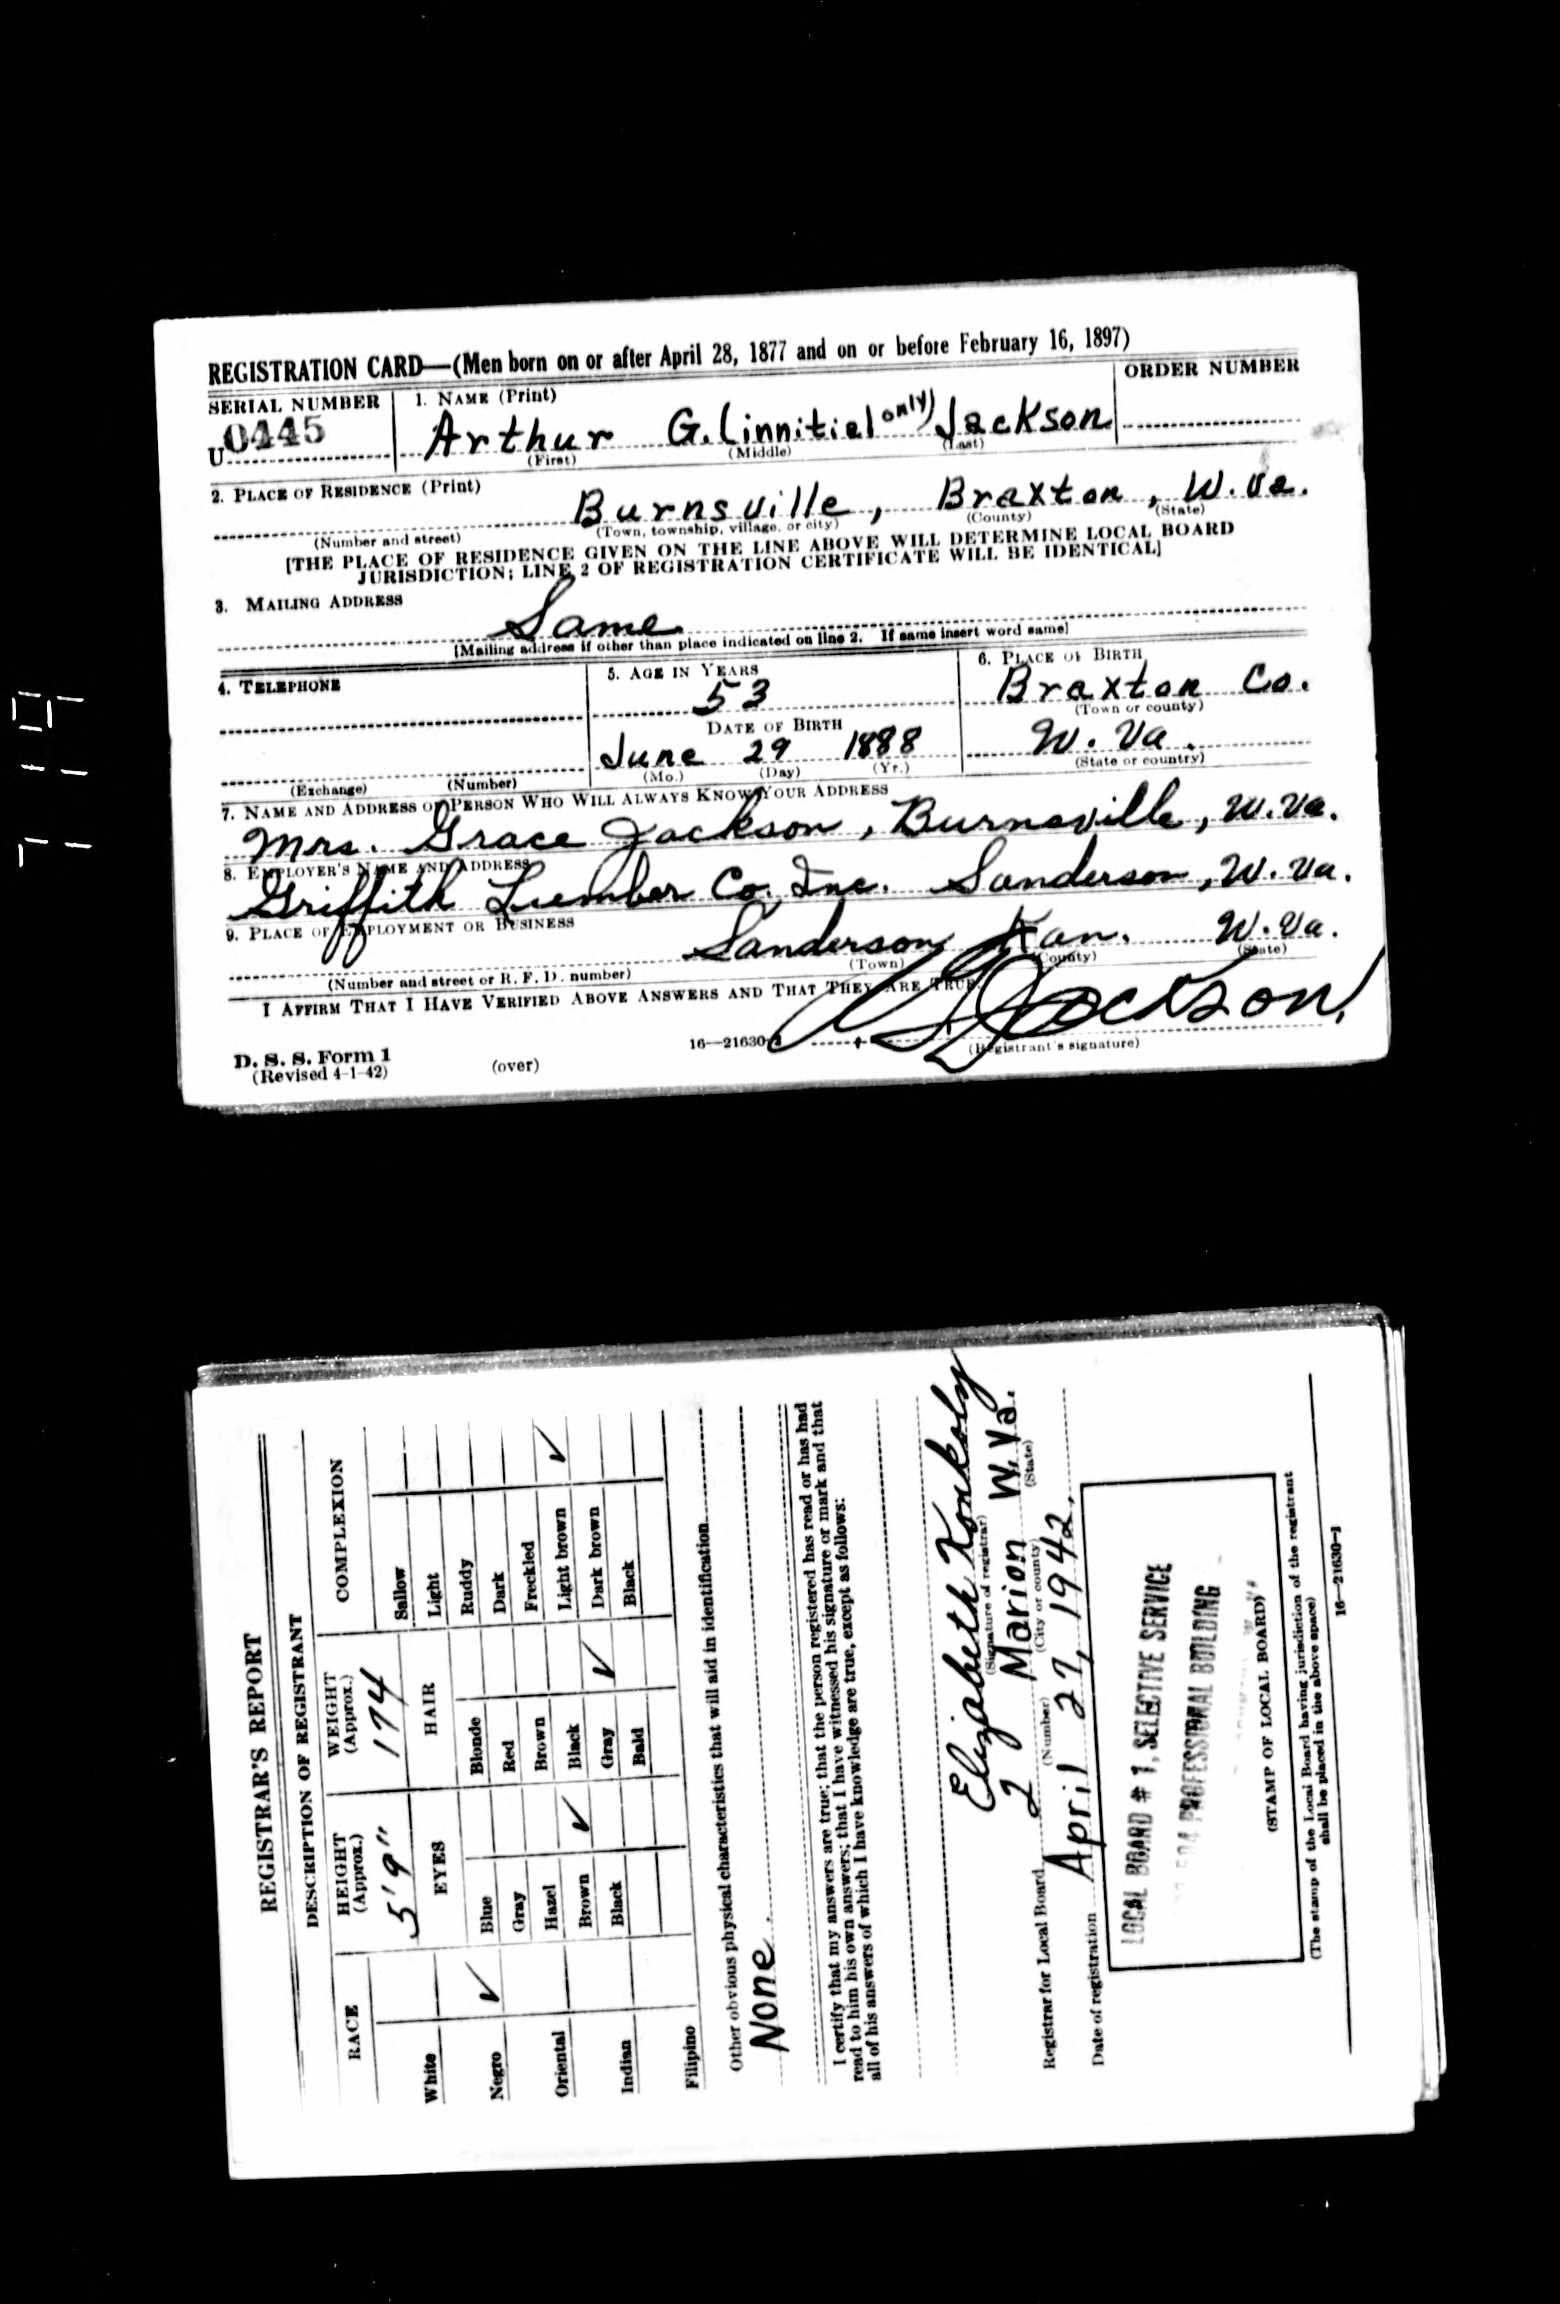 REGISTRATION CARD—(Men born on or after April 28, 1877 and on or before February 16, 1897)
SERIAL NUMBER
1. NAME (Print)
ORDER NUMBER
U 0445
Arthur G. (innitial only) Jackson
(First) (Middle) (Last)
2. PLACE OF RESIDENCE (Print)
Burnsville, Braxton, W. Va.
(Number and street) (Town, township, village, or city) (County) (State)
[THE PLACE OF RESIDENCE GIVEN ON THE LINE ABOVE WILL DETERMINE LOCAL BOARD
JURISDICTION; LINE 2 OF REGISTRATION CERTIFICATE WILL BE IDENTICAL]
3. MAILING ADDRESS
Same
[Mailing address if other than place indicated on line 2. If same insert word same]
4. TELEPHONE
5. AGE IN YEARS
6. PLACE OF BIRTH
53
Braxton Co.
(Town or county)
DATE OF BIRTH
June 29 1888
W. Va.
(Exchange) (Number)
(Mo.) (Day) (Yr.)
(State or country)
7. NAME AND ADDRESS OF PERSON WHO WILL ALWAYS KNOW YOUR ADDRESS
Mrs. Grace Jackson, Burnsville, W. Va.
8. EMPLOYER'S NAME AND ADDRESS
Griffith Lumber Co. Inc. Sanderson, W. Va.
9. PLACE OF EMPLOYMENT OR BUSINESS
Sanderson Kan. W. Va.
(Number and street or R. F. D. number) (Town) (County) (State)
I AFFIRM THAT I HAVE VERIFIED ABOVE ANSWERS AND THAT THEY ARE TRUE.
Jackson
D. S. S. Form 1
(Revised 4-1-42)
(over)
16—21630-1
(Registrant's signature)
REGISTRAR'S REPORT
DESCRIPTION OF REGISTRANT
RACE
HEIGHT
(Approx.)
WEIGHT
(Approx.)
COMPLEXION
5'9"
174
EYES
HAIR
White
Negro ✓
Oriental
Indian
Filipino
Blue
Gray
Hazel
Brown ✓
Black
Blonde
Red
Brown
Black
Gray ✓
Bald
Sallow
Light
Ruddy
Dark
Freckled
Light brown ✓
Dark brown
Black
Other obvious physical characteristics that will aid in identification
None.
I certify that my answers are true; that the person registered has read or has had
read to him his own answers; that I have witnessed his signature or mark and that
all of his answers of which I have knowledge are true, except as follows:
Elizabeth Konkoly
(Signature of registrar)
Registrar for Local Board 2 Marion W. Va.
(Number) (City or county) (State)
Date of registration April 27, 1942.
LOCAL BOARD # 1, SELECTIVE SERVICE
PROFESSIONAL BUILDING
(STAMP OF LOCAL BOARD)
(The stamp of the Local Board having jurisdiction of the registrant
shall be placed in the above space)
16—21630-1